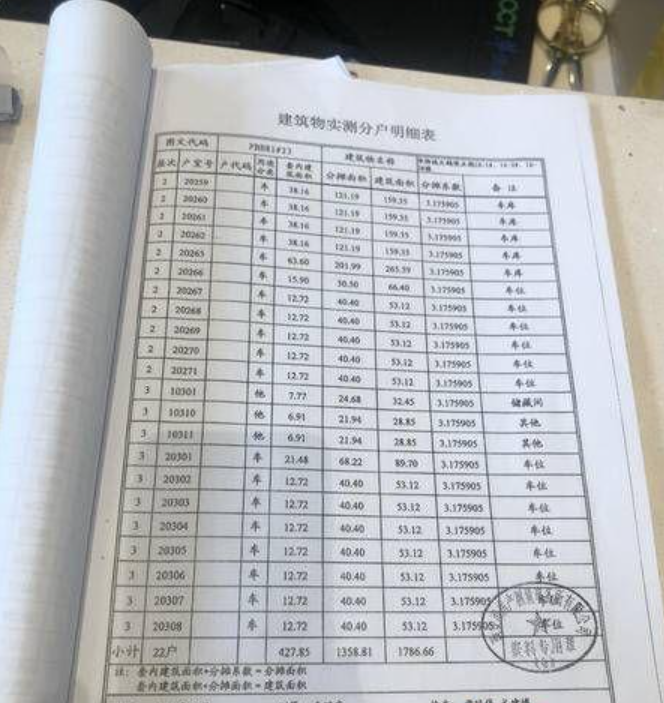 建筑物实测分户明细表
图文代码 建筑物名称
层次 户室号 户代码 用途分类 套内建筑面积 分摊面积 建筑面积 分摊系数 备注
2 20259 车 38.16 121.19 159.35 3.175905 车库
2 20260 车 38.16 121.19 159.35 3.175905 车库
2 20261 车 38.16 121.19 159.35 3.175905 车库
2 20262 车 38.16 121.19 159.35 3.175905 车库
2 20265 车 63.60 201.99 265.59 3.175905 车位
2 20266 车 15.90 50.50 66.40 3.175905 车位
2 20267 车 12.72 40.40 53.12 3.175905 车位
2 20268 车 12.72 40.40 53.12 3.175905 车位
2 20269 车 12.72 40.40 53.12 3.175905 车位
2 20270 车 12.72 40.40 53.12 3.175905 车位
2 20271 车 12.72 40.40 53.12 3.175905 车位
3 10301 他 7.77 24.68 32.45 3.175905 储藏间
3 10310 他 6.91 21.94 28.85 3.175905 其他
3 10311 他 6.91 21.94 28.85 3.175905 其他
3 20301 车 21.48 68.22 89.70 3.175905 车位
3 20302 车 12.72 40.40 53.12 3.175905 车位
3 20303 车 12.72 40.40 53.12 3.175905 车位
3 20304 车 12.72 40.40 53.12 3.175905 车位
3 20305 车 12.72 40.40 53.12 3.175905 车位
3 20306 车 12.72 40.40 53.12 3.175905 车位
3 20307 车 12.72 40.40 53.12 3.175905 车位
3 20308 车 12.72 40.40 53.12 3.175905 车位
小计 22户 427.85 1358.81 1786.66
注: 套内建筑面积*分摊系数=分摊面积
套内建筑面积+分摊面积=建筑面积
资料专用章